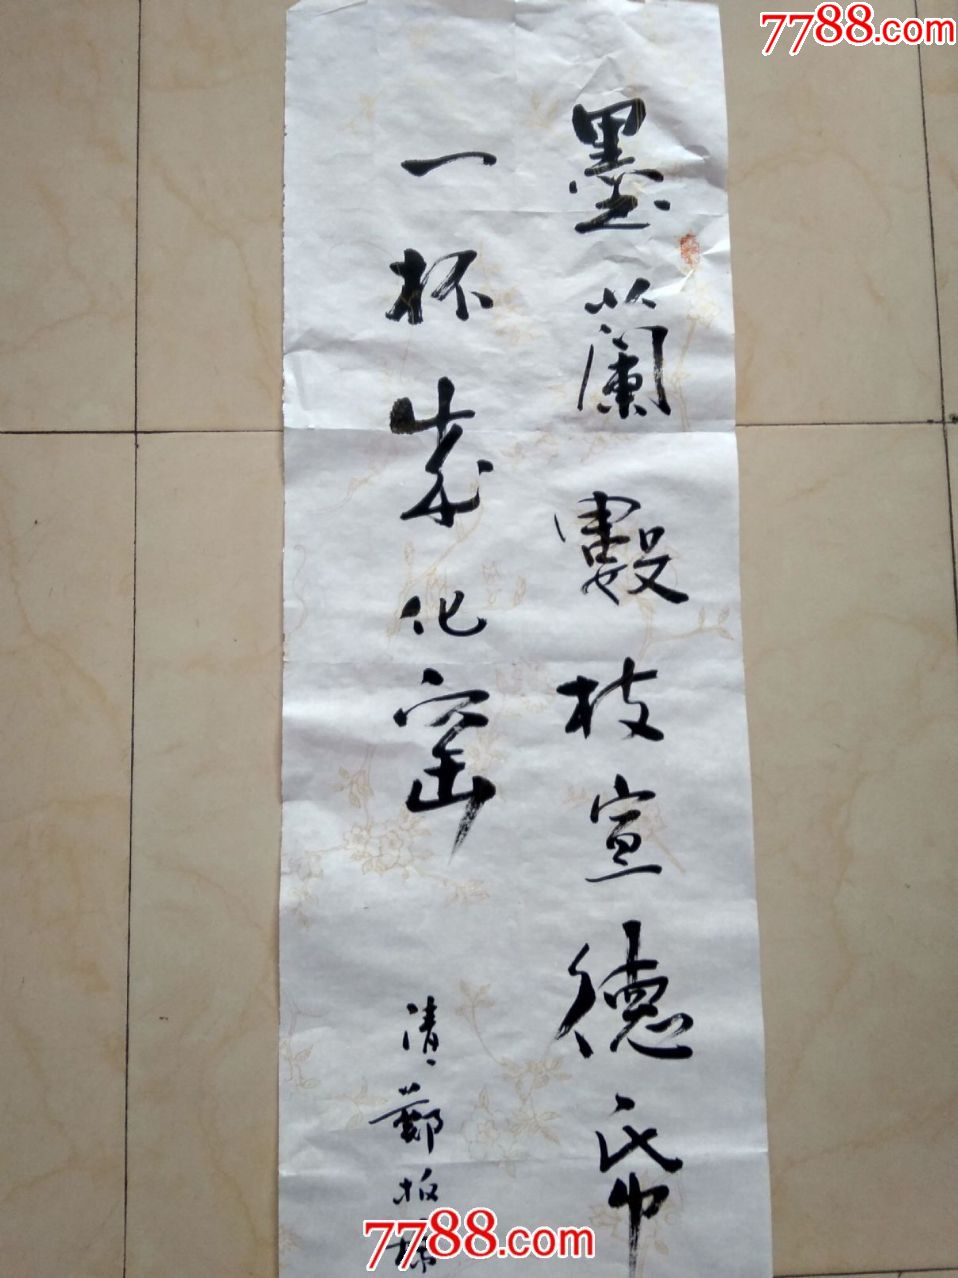 7788.com
墨蘭數枝宣德帋
一杯成化窑
清鄭板橋
7788.com